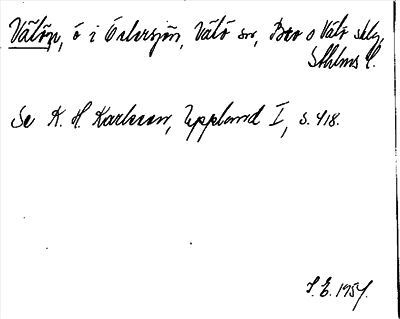 Vätön, ö i Östersjön, Vätö sn, Bro o Vätö skg,
Sthlms l.
Se K. H. Karlsson, Uppland I, s. 418.
S. E. 1954.